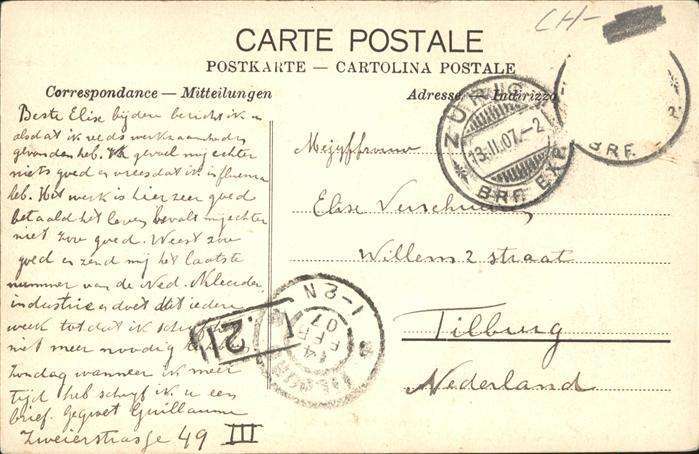 CH-
CARTE POSTALE
POSTKARTE — CARTOLINA POSTALE
Correspondance — Mitteilungen
Adresse — Indirizzo
Beste Elise bijdeze bericht ik u
alsdat ik reeds werkzaamheden
gevonden heb. Ik gevoel mij echter
niets goed en vrees dat ik influenza
heb. Het werk is hier zeer goed
betaald het leven bevalt mij echter
niet zoo goed. Weest zoo
goed en zend mij het laatste
nummer van de Ned. Kleeder
industrie en doet dit iedere
week tot dat ik
niet meer noodig
Zondag wanneer ik meer
tijd heb schrijf ik u een
brief. gegroet Guillaume
Zweierstrasse 49 III
Mejuffrouw
Elise
Willem 2 straat
Tilburg
Nederland
ZÜRICH
13.II.07.-2
BRF. EXP.
BRF.
1-2N
14
FEB
07
2